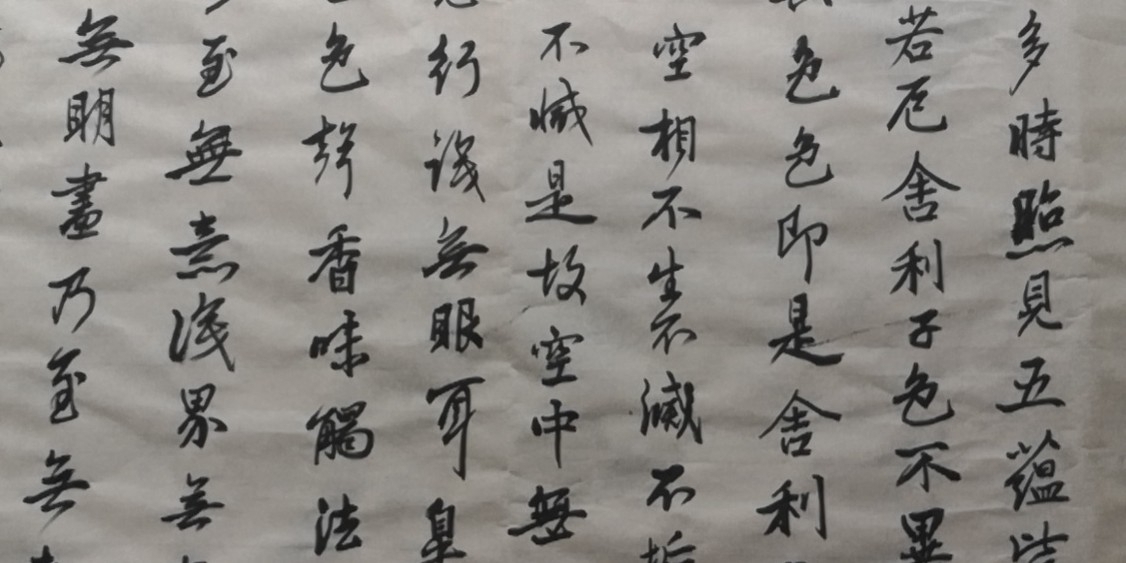 多時照見五蘊皆
若厄舍利子色不異
色色即是舍利
空相不生不滅不垢
不減是故空中無
行識無眼耳鼻
色聲香味觸法
至無意識界無
無明盡乃至無